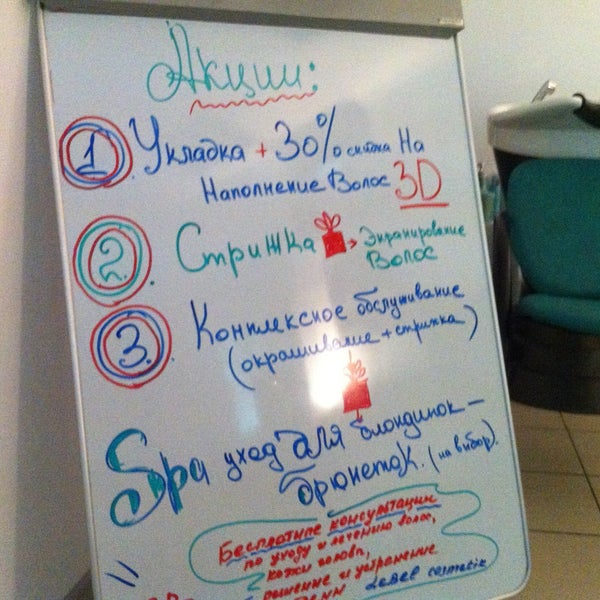 Акции:
1. Укладка + 30% скидка На
Наполнение Волос 3D
2. Стрижка → Экранирование
Волос
3. Комплексное обслуживание
(окрашивание + стрижка)
Spa уход для блондинок –
брюнеток. (на выбор).
Бесплатные консультации
по уходу и лечению волос,
кожи головы,
решение и устранение
Lebel cosmetic